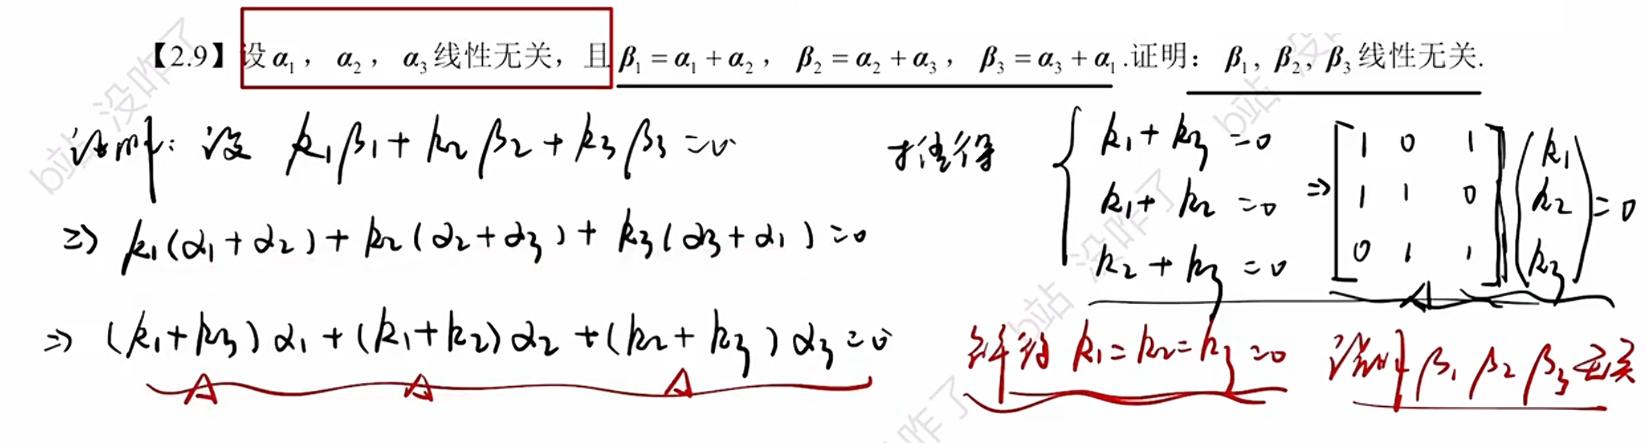 【2.9】设α₁，α₂，α₃线性无关，且β₁=α₁+α₂，β₂=α₂+α₃，β₃=α₃+α₁.证明：β₁，β₂，β₃线性无关.
证明：设 k₁β₁+k₂β₂+k₃β₃=0
⇒ k₁(α₁+α₂)+k₂(α₂+α₃)+k₃(α₃+α₁)=0
⇒ (k₁+k₃)α₁+(k₁+k₂)α₂+(k₂+k₃)α₃=0
推得
k₁+k₃=0
k₁+k₂=0
k₂+k₃=0
⇒
1 0 1
1 1 0
0 1 1
k₁
k₂
k₃
=0
A
解得 k₁=k₂=k₃=0
证明 β₁ β₂ β₃ 无关
b站 没咋了
b站 没咋了